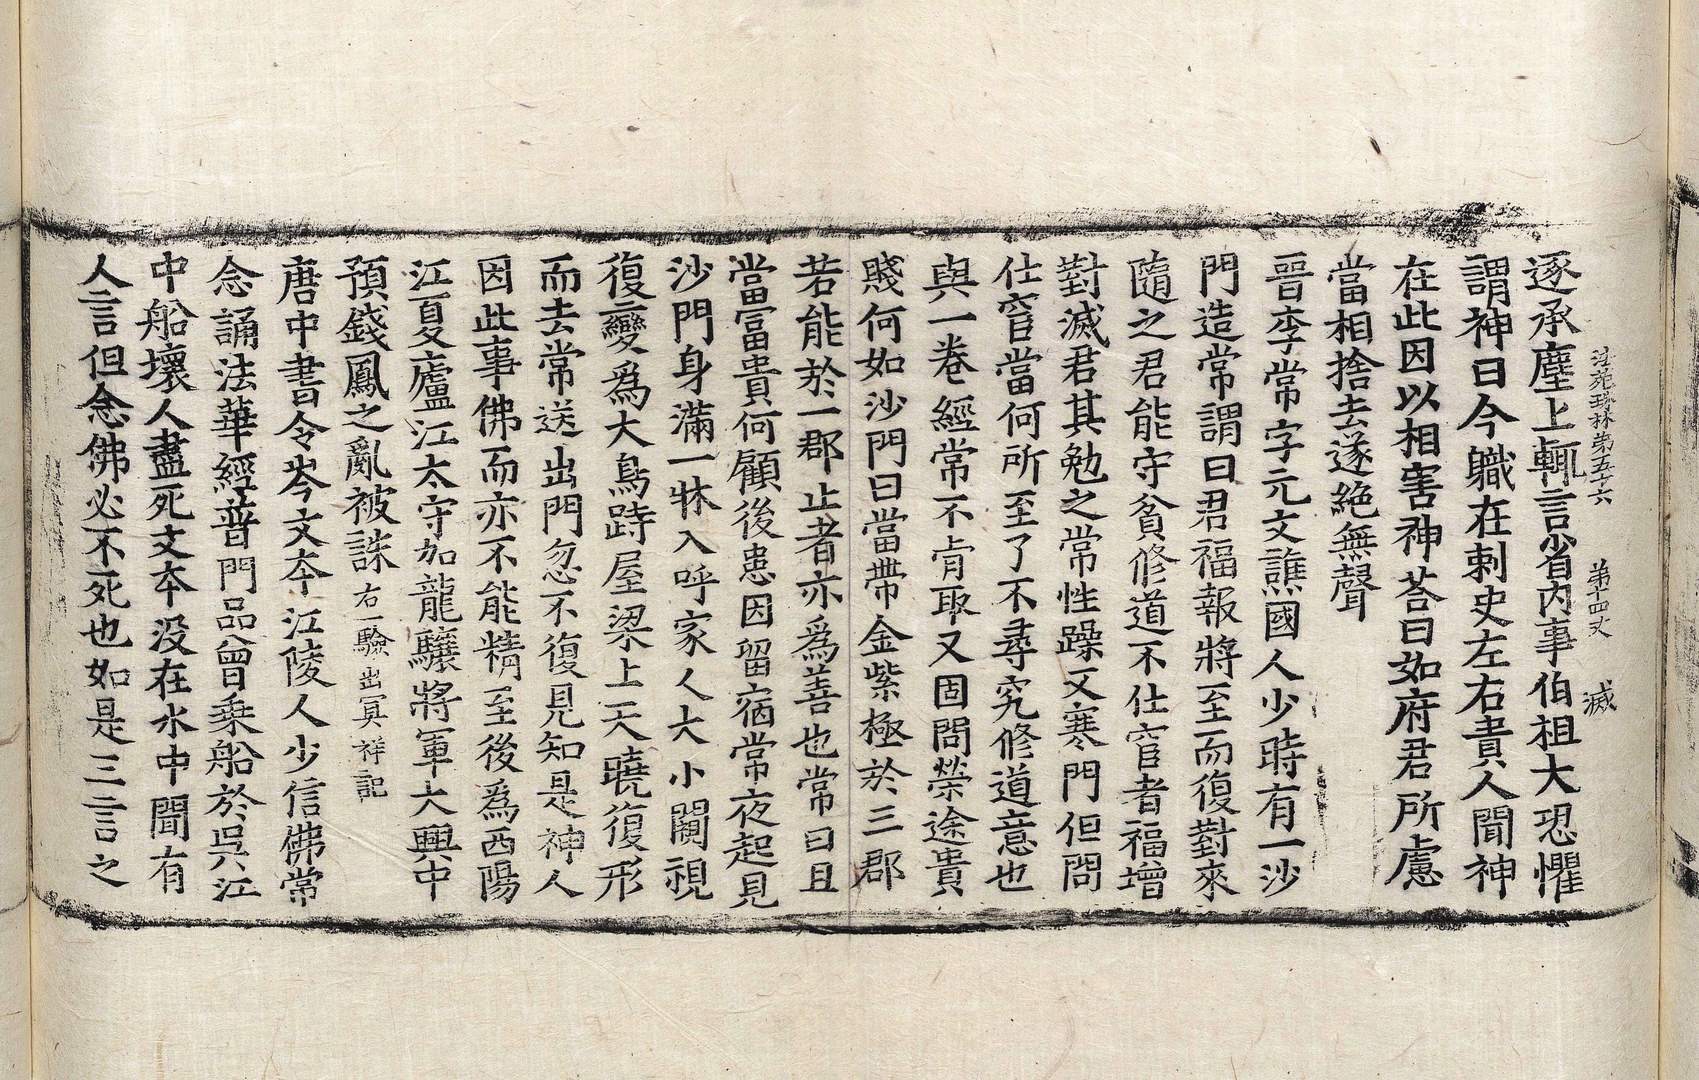 法苑珠林第五十六 第十四丈 滅
逐承塵上輒言省內事伯祖大恐懼
謂神曰今職在刺史左右貴人聞神
在此因以相害神荅曰如府君所慮
當相捨去遂絶無聲
晉李常字元文譙國人少時有一沙
門造常謂曰君福報將至而復對來
隨之君能守貧修道不仕官者福增
對滅君其勉之常性躁又寒門但問
仕官當何所至了不尋究修道意也
與一卷經常不肯取又固問榮途貴
賤何如沙門曰當帶金紫極於三郡
若能於一郡止者亦爲善也常曰且
當富貴何顧後患因留宿常夜起見
沙門身滿一牀入呼家人大小闚視
復變爲大鳥跱屋梁上天曉復形
而去常送出門忽不復見知是神人
因此事佛而亦不能精至後爲西陽
江夏廬江太守加龍驤將軍大興中
預錢鳳之亂被誅右一驗出冥祥記
唐中書令岑文本江陵人少信佛常
念誦法華經普門品曾乗船於吳江
中船壞人盡死文本没在水中聞有
人言但念佛必不死也如是三言之